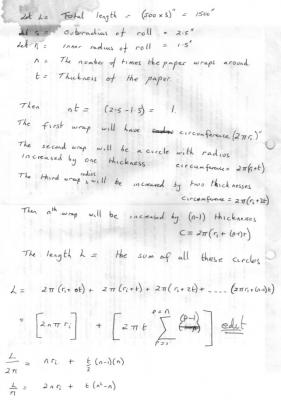 Let L = Total length = (500 × 3)" = 1500"
Let r₀ = Outer radius of roll = 2·5"
Let rᵢ = inner radius of roll = 1·5"
n = The number of times the paper wraps around
t = Thickness of the paper.
Then nt = (2·5 - 1·5) = 1.
The first wrap will have circumference (2πrᵢ)"
The second wrap will be a circle with radius
increased by one thickness circumference = 2π(rᵢ+t)
The third wrap radius will be increased by two thicknesses
circumference = 2π(rᵢ+2t)
Then nᵗʰ wrap will be increased by (n-1) thicknesses
C = 2π(rᵢ + (n-1)t)
The length L = the sum of all these circles
L = 2π(rᵢ+0t) + 2π(rᵢ+t) + 2π(rᵢ+2t) + ---- (2πrᵢ+(n-1)t)
= [2nπrᵢ] + [2πt Σ p=1 p=n (p-1)] edit
L/2π = nrᵢ + t/2 (n-1)(n)
L/π = 2nrᵢ + t(n²-n)